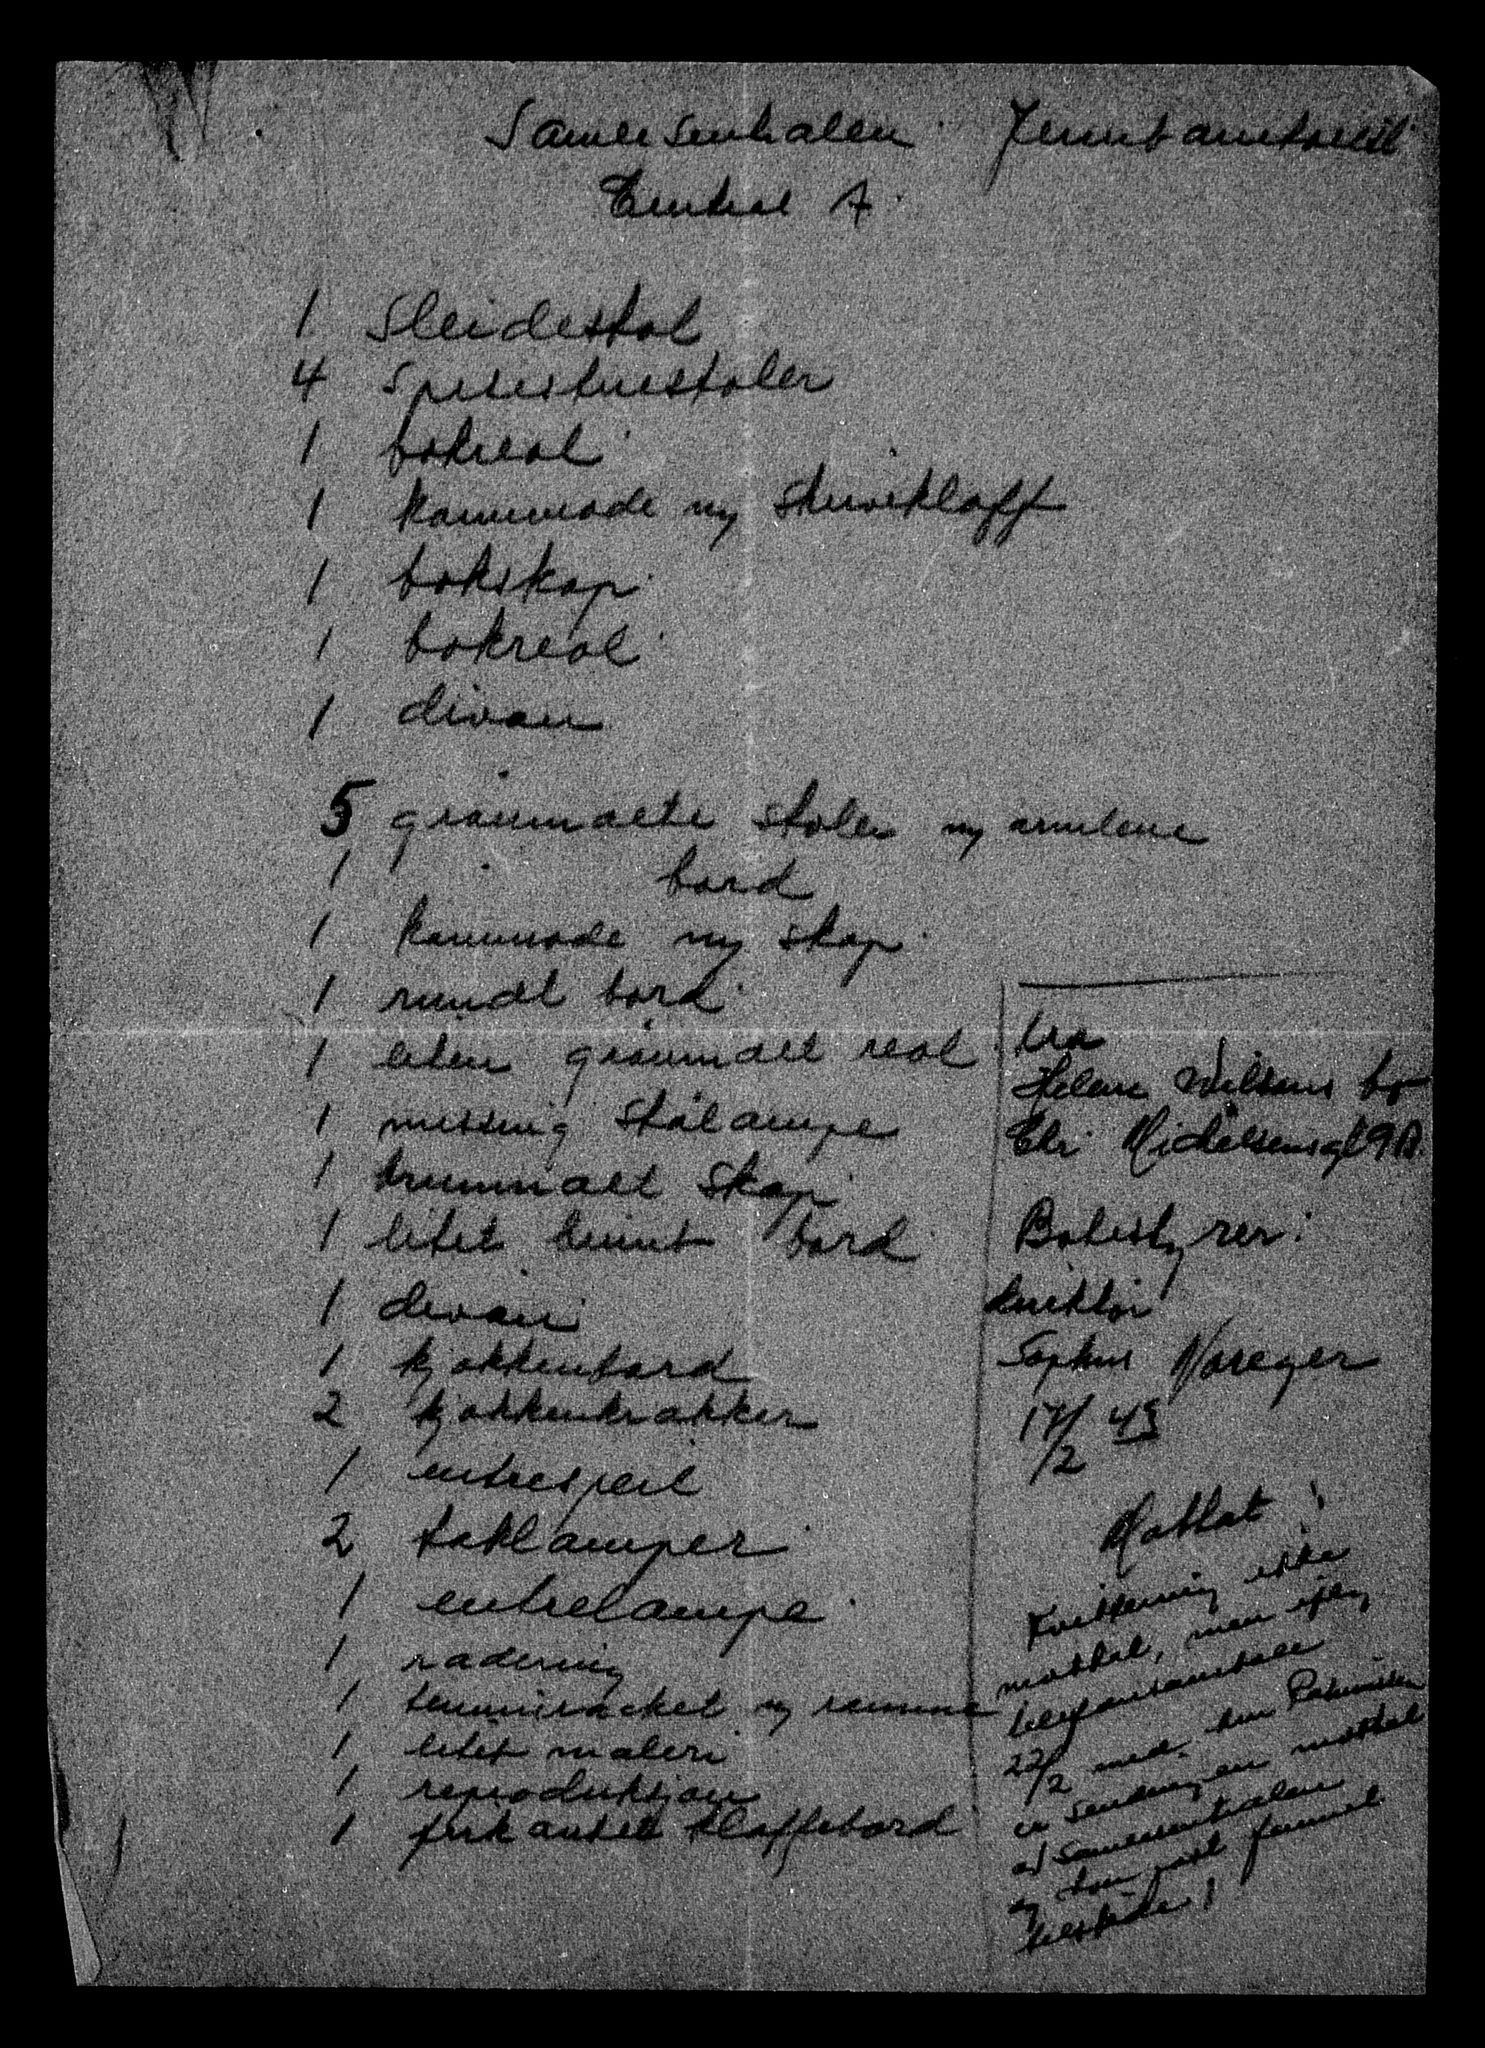 Samlesentralen
Sentral A.
1 Sleidestol
4 Spisestuestoler
1 bokreol
1 kommode m/ skriveklaff
1 bokskap
1 bokreol
1 divan
5 gråmalte stoler m/ armlene
1 " bord
1 kommode m/ skap
1 rundt bord
1 liten gråmalt reol
1 messing stålampe
1 brunmalt skap
1 litet brunt bord
1 divan
1 kjøkkenbord
2 kjøkkenkrakker
1 entrespeil
2 taklamper
1 entrelampe
1 radering
1 tennisracket m/ ramme
1 litet maleri
1 reproduksjon
1 firkantet klaffebord
fra
Helene Nilsens bo
Chr. Michelsensgt 9 A.
Bobestyrer:
direktør
Sophus
17/2 45
Mottat!
Kvittering ikke
mottat, men ifølg
telefonsamtale
22/2 med
er sendingen mottat
av Samlesentralen
og
tilstede!